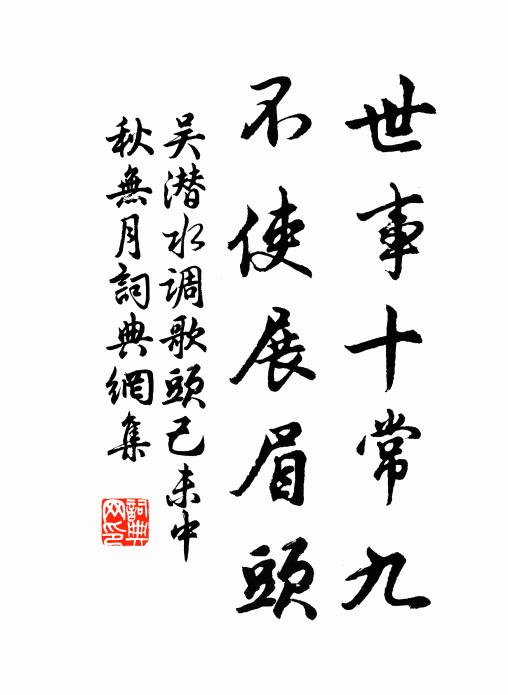 世事十常九
不使展眉頭
吴潜水调歌頭己未中
秋無月詞典網集
詞典
网印